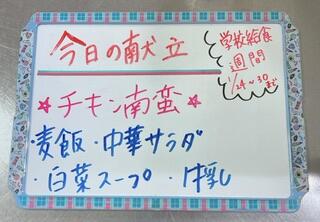 今日の献立
学校給食
週間
1/24~30まで
☆チキン南蛮☆
麦飯・中華サラダ
・白菜スープ・牛乳